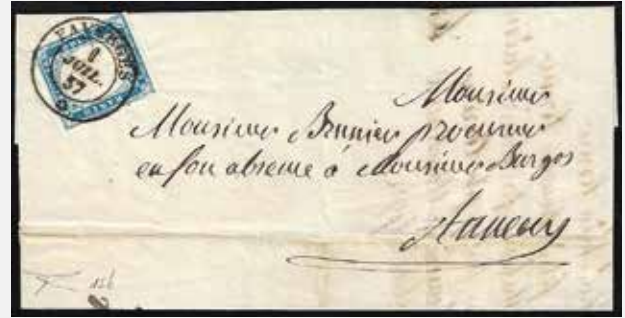 FAVERGES
1
JUIL.
57
Monsieur
Monsieur Brunier procureur
en son absence à Monsieur Burgos
Annecy